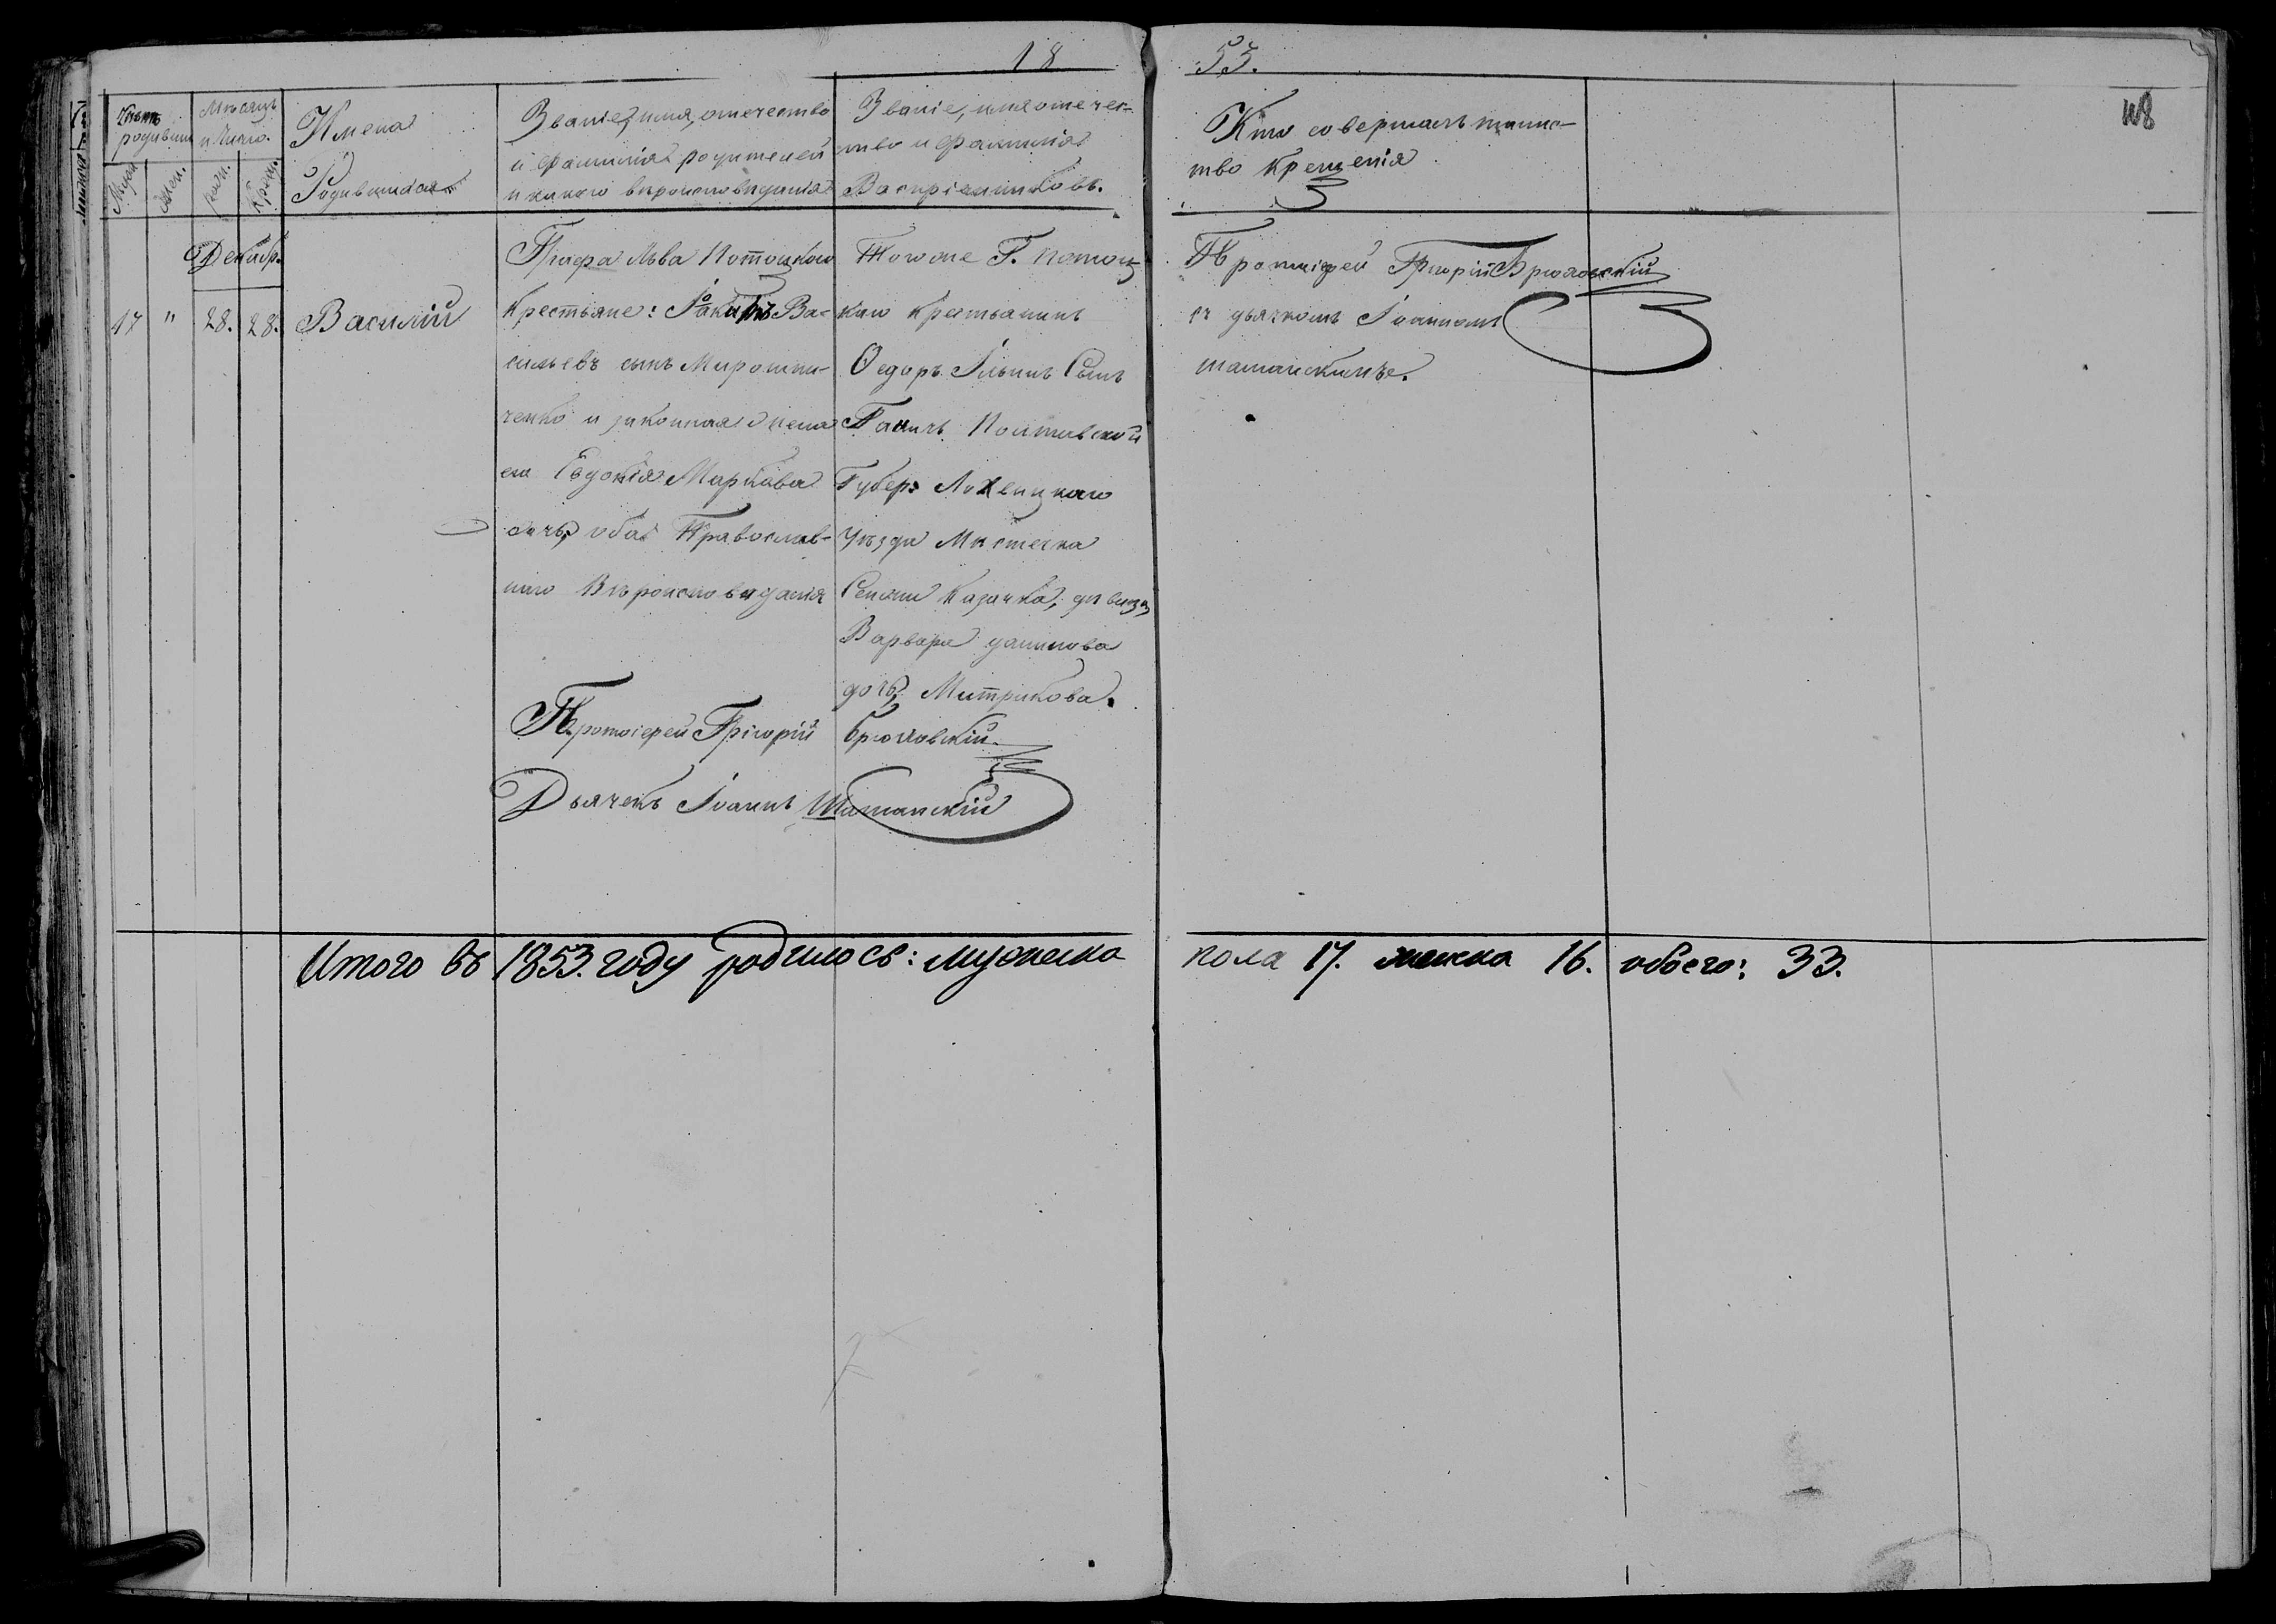 18 53.
118
Счетъ родивших
Мѣсяцъ и Число.
Имена Родившихся
Званіе, имя, отечество
и фамилія родителей
и какого вѣроисповѣданія
Званіе, имя отечес-
тво и фамилія
Воспріемниковъ.
Кто совершалъ таинс-
тво крещенія
Муж. Жен. рожд. Крещ.
Декабр.
17 " 28. 28. Василій
Графа Льва Потоцкаго
Крестьяне: Іоакимъ Ва-
сильевъ сынъ Мирошни-
ченко и законная жена
его Евдокія Маркова
дочь, оба Православ-
наго Вѣроисповѣданія
Тогоже Г. Потоц-
каго крестьянинъ
Ѳедоръ Ильинъ Сынъ
Полтавской
Губер: Лохвицкаго
Уѣзда Мѣстечка
Сенчи Казачка, девица
Варвара данилова
дочь Митрикова.
Протоіерей Григорій Брюховскій
съ дьячкомъ Іоанномъ
шатанскимъ.
Протоіерей Григорій Брюховскій.
Дьячекъ Іоаннъ Шатанскій
Итого въ 1853. году родилось: мужеска пола 17. женска 16. обоего: 33.